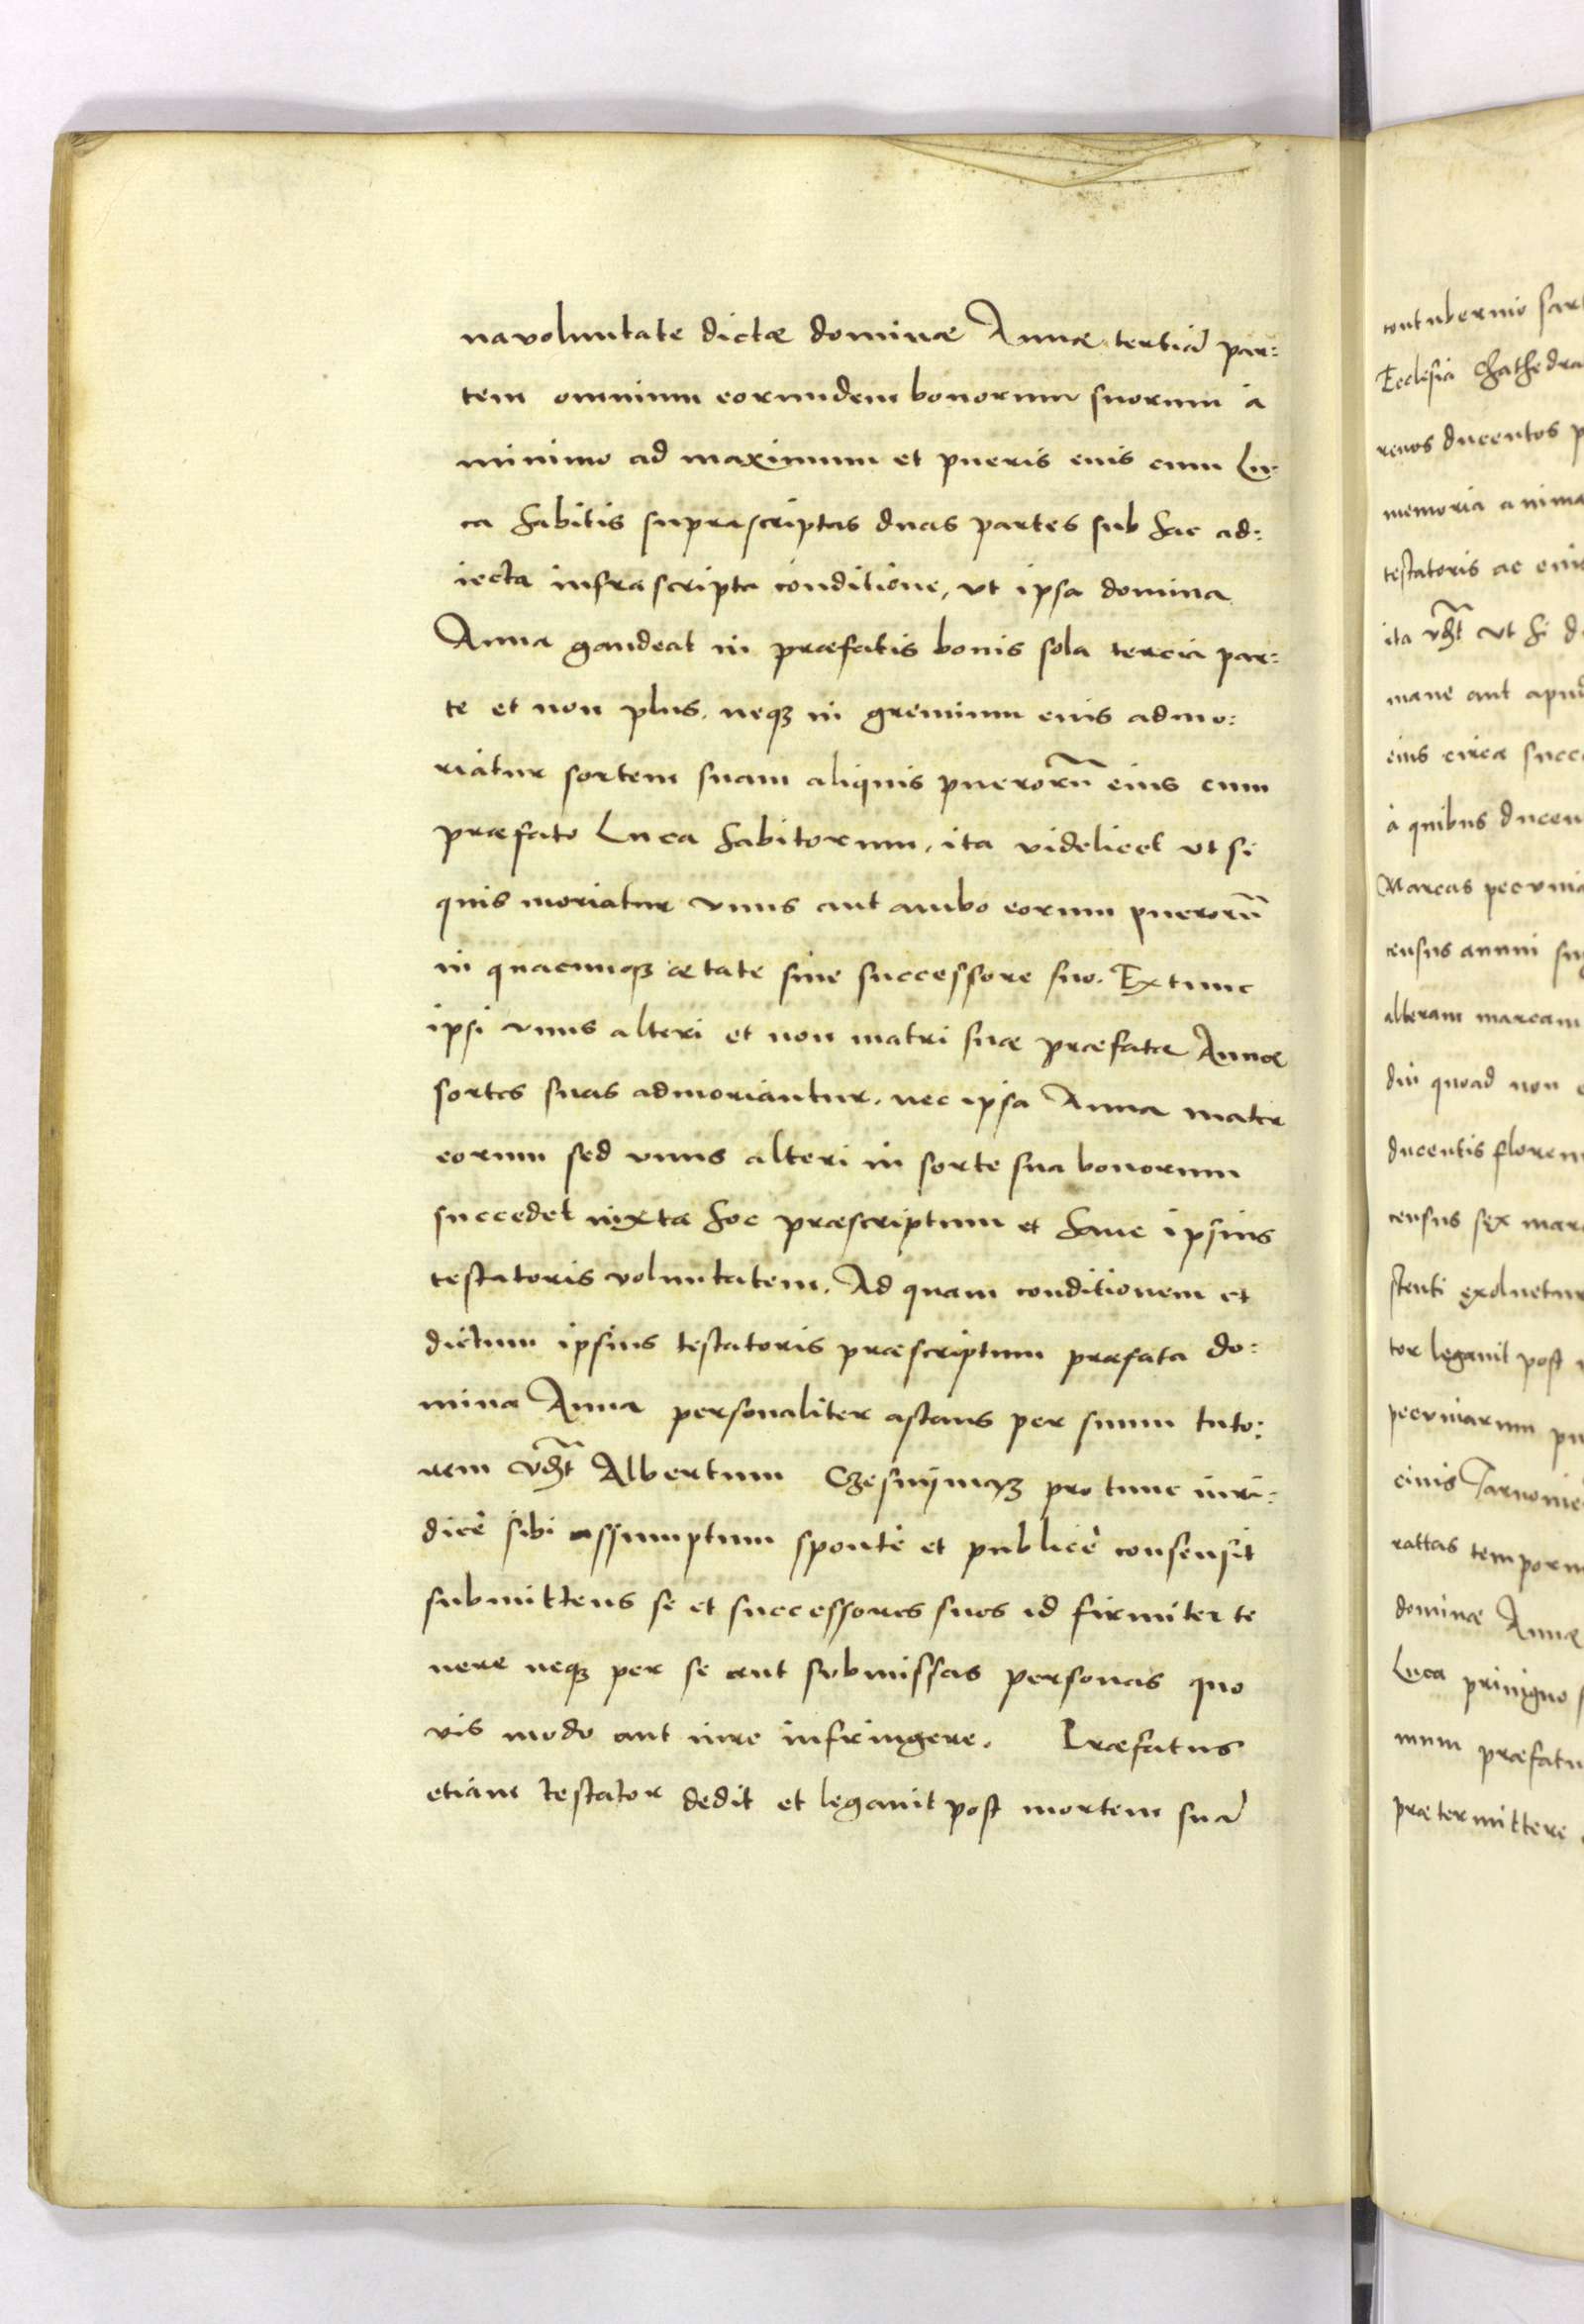 na voluntate dictæ dominæ Annæ tertiã par:
tem omnium eorundem bonorum suorum à
minimo ad maximum et pueris eius cum Lu:
ca habitis suprascriptas duas partes sub hac ad:
iecta infrascripta conditione, vt ipsa domina
Anna gaudeat in præfatis bonis sola tercia par:
te et non plus, neqꝫ in gremium eius admo:
riatur sortem suam aliquis puerorũ eius cum
præfato Luca habitorum, ita videlicet vt si
quis moriatur vnus aut ambo eorum puerorũ
in quacunqꝫ ætate sine successore suo. Extunc
ipsi vnus alteri et non matri suæ præfatæ Annæ
sortes suas admoriantur, nec ipsa Anna mater
eorum sed vnus alteri in sorte sua bonorum
succedet iuxta hoc præscriptum et hanc ipsius
testatoris voluntatem. Ad quam conditionem et
dictum ipsius testatoris præscriptum præfata do:
mina Anna personaliter astans per suum tuto:
rem vdt Albertum pro tunc iuri:
dicè sibi assumptum spontè et publicè consensit
submittens se et successores suos id firmiter te
nere neqꝫ per se aut submissas personas quo
vis modo aut iure infringere. Præfatus
etiam testator dedit et legauit post mortem suã
contubernio sart
Ecclesia Chathedra
renos ducentos p
memoria anima
testatoris ac eius
ita vdt vt si d
mane aut apud
eius circa succ
à quibus ducen
Marcas pecunia
census annui su
alteram marcam
diu quoad non
ducentis floren
census sex mar
stenti exoluetur
tor legauit post
pecuniarum pu
ciuis Tarnouie
rattas tempor
dominæ Annæ
Luca priuigno
mum præfatu
prætermittere